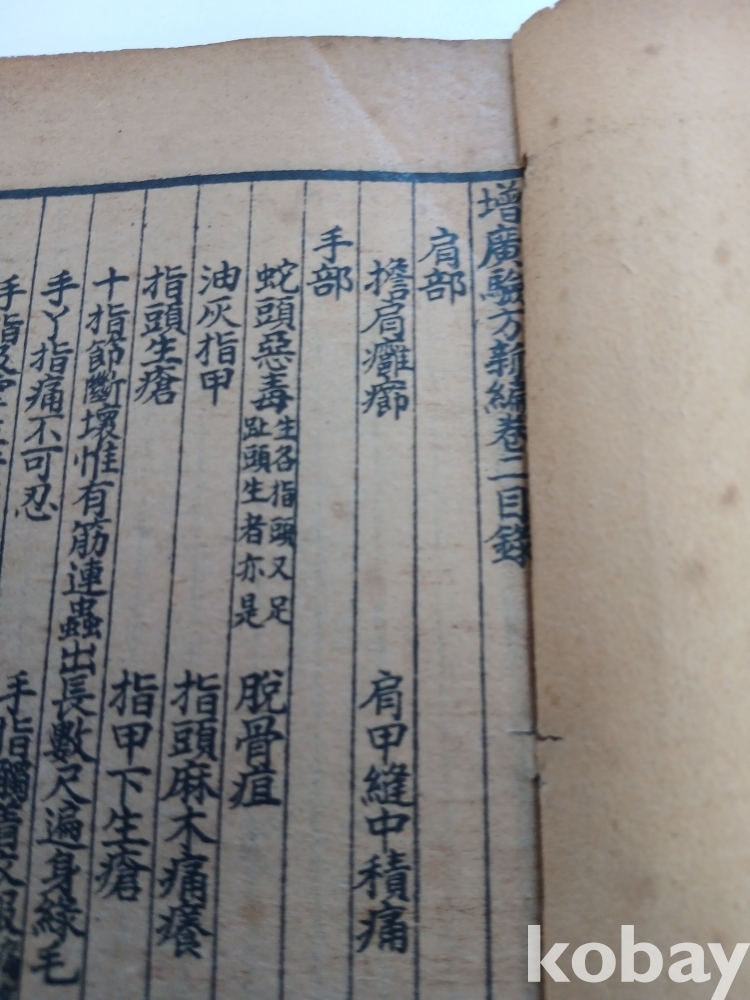 增廣驗方新編卷二目錄
肩部
擔肩癰癤 肩甲縫中積痛
手部
蛇頭惡毒 生各指頭又足趾頭生者亦是 脫骨疽
油灰指甲 指頭麻木痛癢
指頭生瘡 指甲下生瘡
十指節斷壞惟有筋連蟲出長數尺遍身綠毛
手丫指痛不可忍
手指 手指
kobay